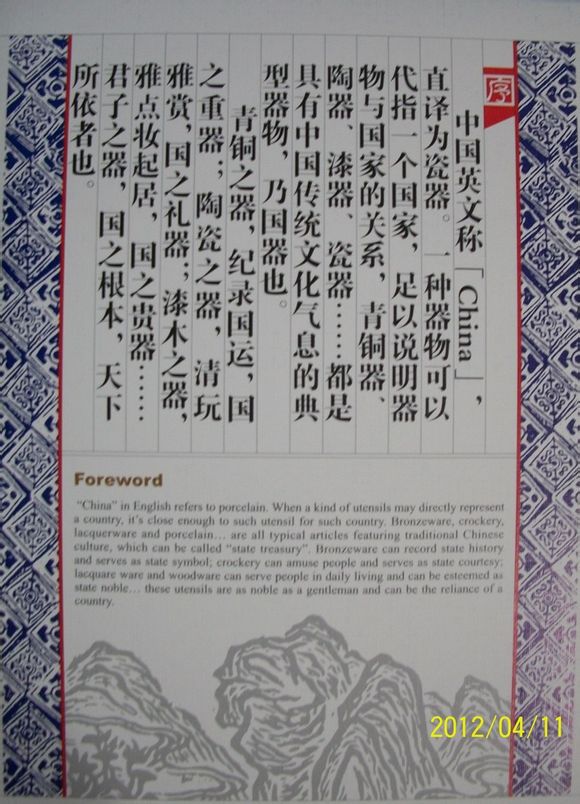 序
中国英文称「China」，
直译为瓷器。一种器物可以
代指一个国家，足以说明器
物与国家的关系，青铜器、
陶器、漆器、瓷器……都是
具有中国传统文化气息的典
型器物，乃国器也。
青铜之器，纪录国运，国
之重器；陶瓷之器，清玩
雅赏，国之礼器；漆木之器，
雅点妆起居，国之贵器……
君子之器，国之根本，天下
所依者也。
Foreword
"China" in English refers to porcelain. When a kind of utensils may directly represent
a country, it's close enough to such utensil for such country. Bronzeware, crockery,
lacquerware and porcelain… are all typical articles featuring traditional Chinese
culture, which can be called "state treasury". Bronzeware can record state history
and serves as state symbol; crockery can amuse people and serves as state courtesy;
lacquare ware and woodware can serve people in daily living and can be esteemed as
state noble… these utensils are as noble as a gentleman and can be the reliance of a
country.
2012/04/11